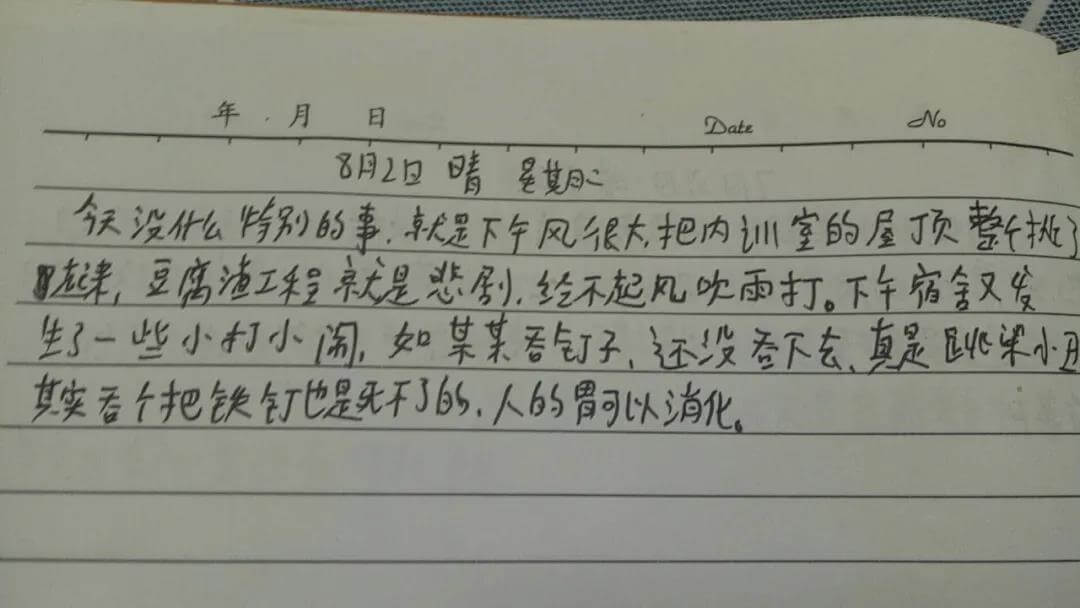 年 月 日 Date No
8月2日 晴 星期二
今天没什么特别的事,就是下午风很大,把内训室的屋顶整个掀了
起来,豆腐渣工程就是悲剧,经不起风吹雨打。下午宿舍又发
生了一些小打小闹,如某某吞钉子,还没吞下去,真是跳梁小丑
其实吞个把铁钉也是死不了的,人的胃可以消化。